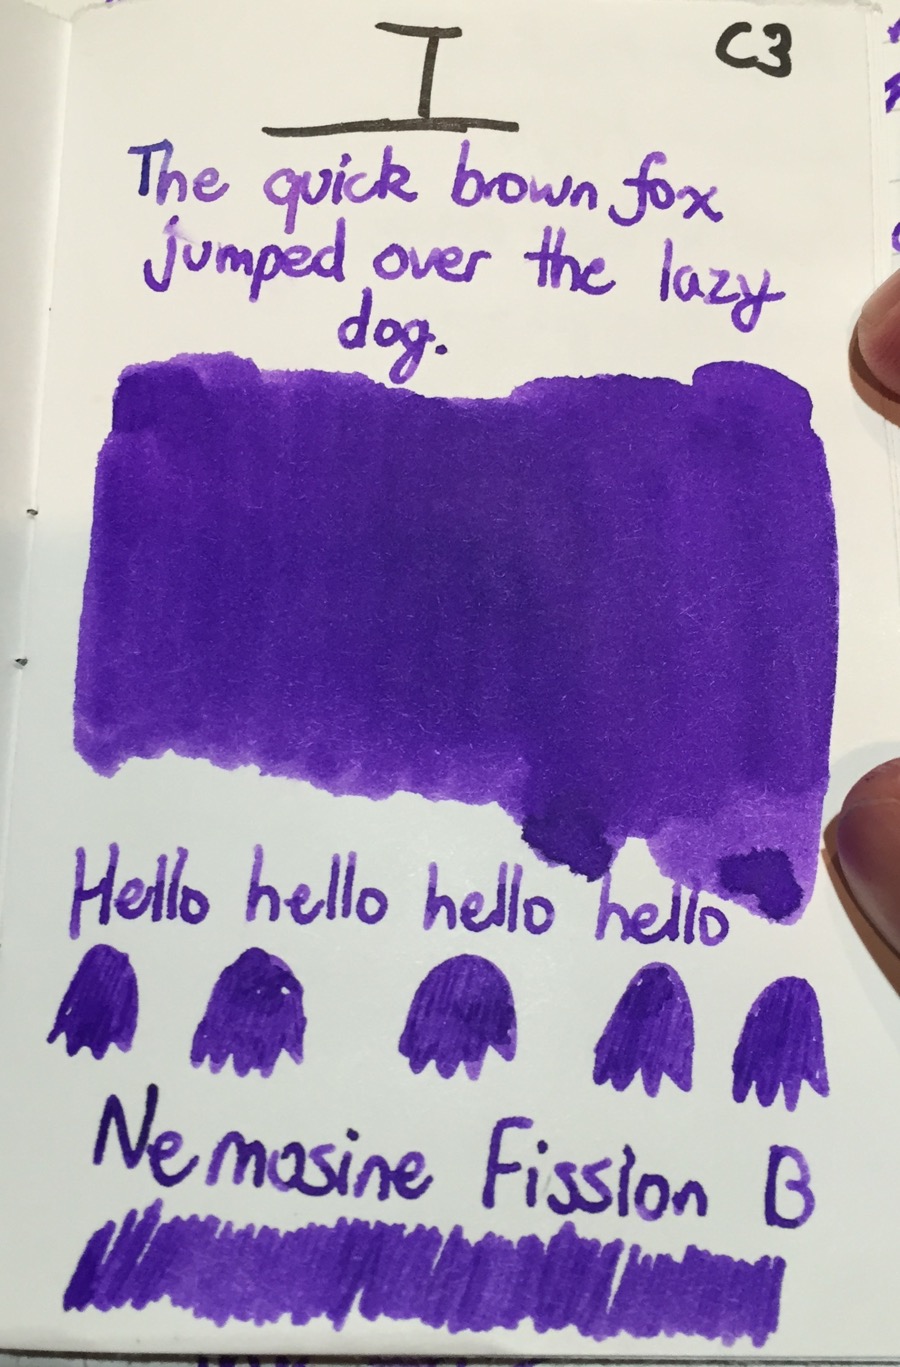 I
C3
The quick brown fox
jumped over the lazy
dog.
Hello hello hello hello
Nemosine Fission B